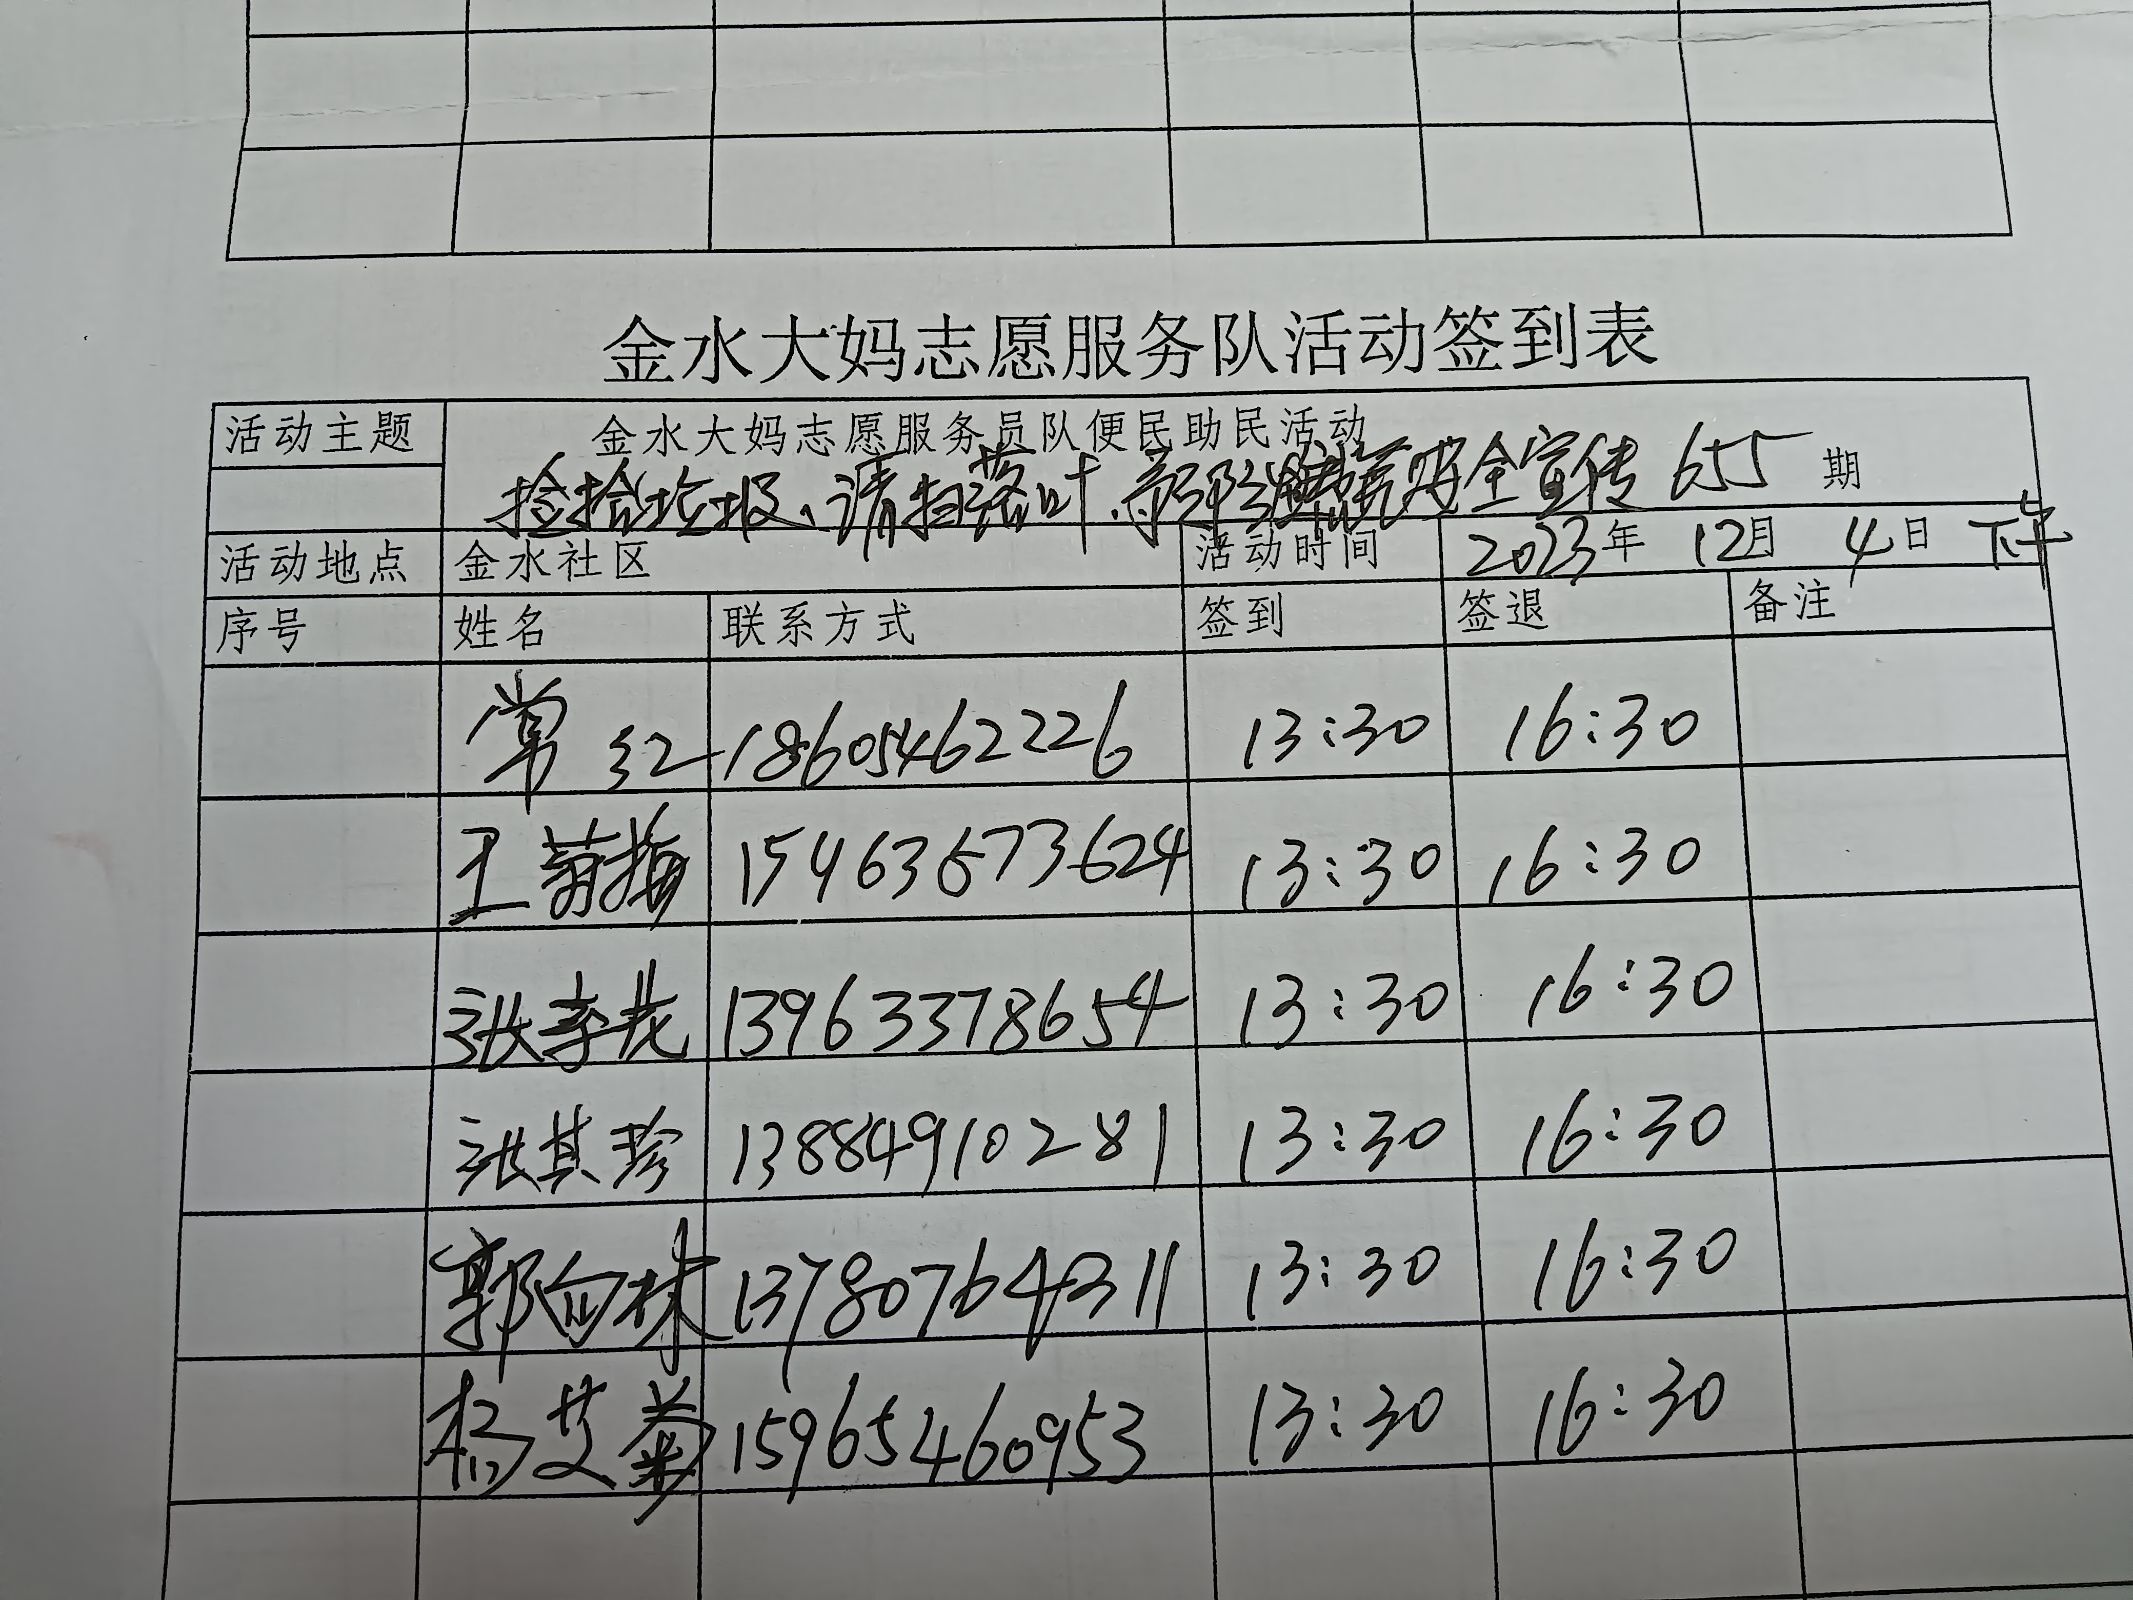 金水大妈志愿服务队活动签到表
活动主题 金水大妈志愿服务员队便民助民活动
捡拾垃圾、请扫落叶、安全宣传 655 期
活动地点 金水社区 活动时间 2023年 12月 4日 下午
序号 姓名 联系方式 签到 签退 备注
常红 18605462226 13:30 16:30
王菊梅 15463673624 13:30 16:30
张 13963378654 13:30 16:30
张其珍 13884910281 13:30 16:30
郭向林 13780764311 13:30 16:30
杨艾菊 15965460953 13:30 16:30